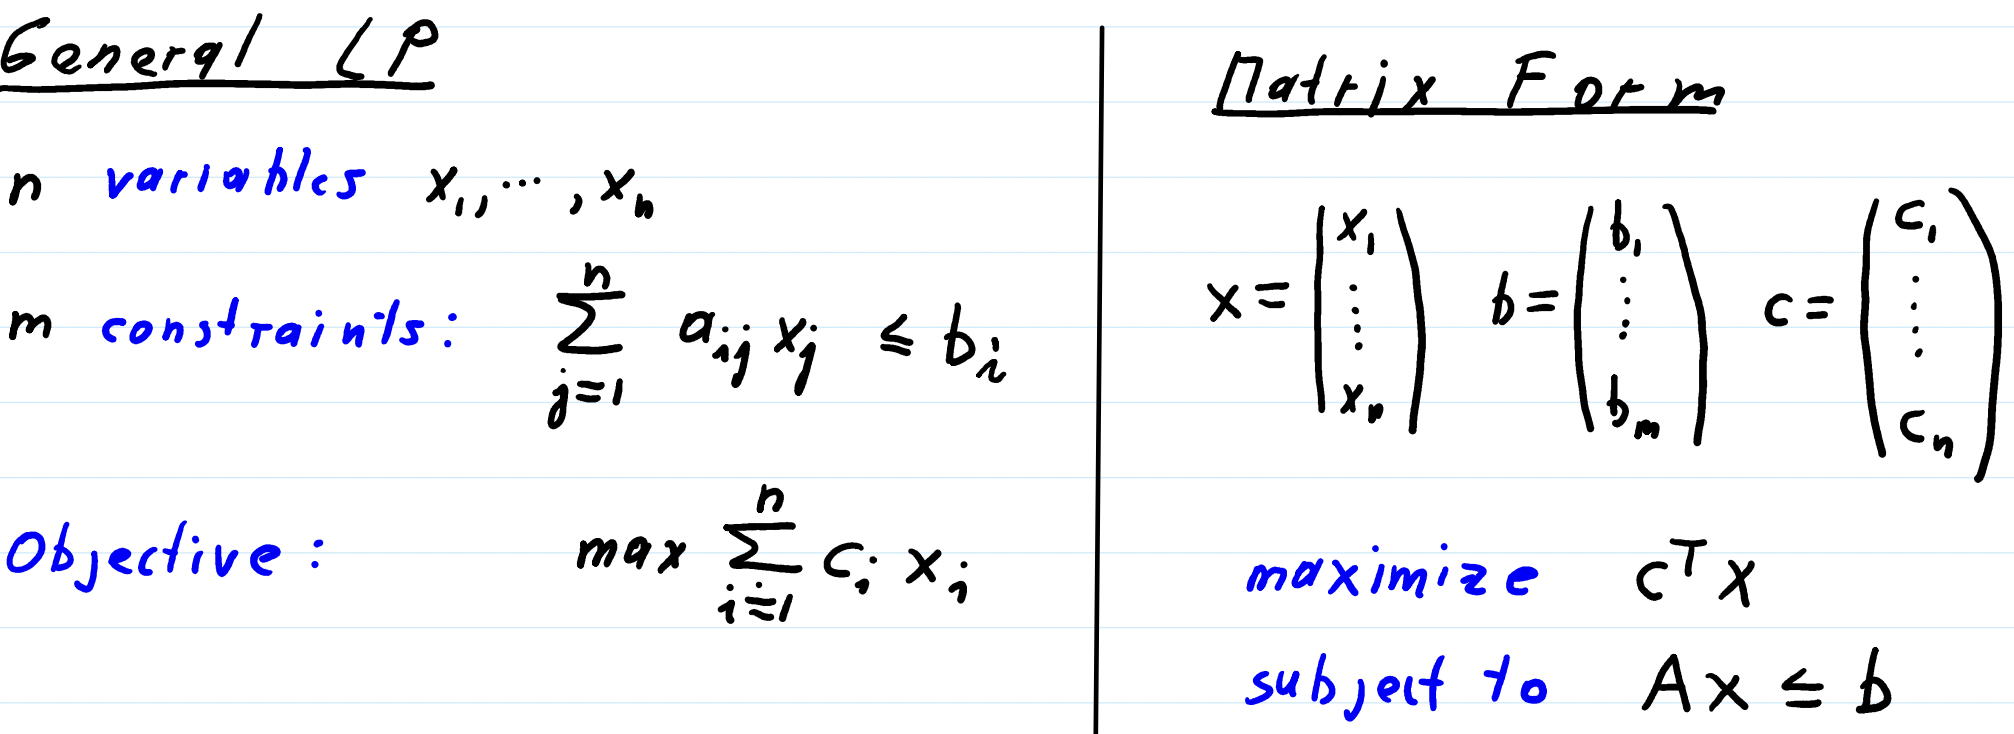 General LP
n variables x₁, ⋯ , xₙ
m constraints: ∑_{j=1}^{n} a_{ij} x_j ≤ b_i
Objective: max ∑_{i=1}^{n} c_i x_i
Matrix Form
x = (x₁ ⋮ xₙ) b = (b₁ ⋮ b_m) c = (c₁ ⋮ cₙ)
maximize cᵀx
subject to Ax ≤ b